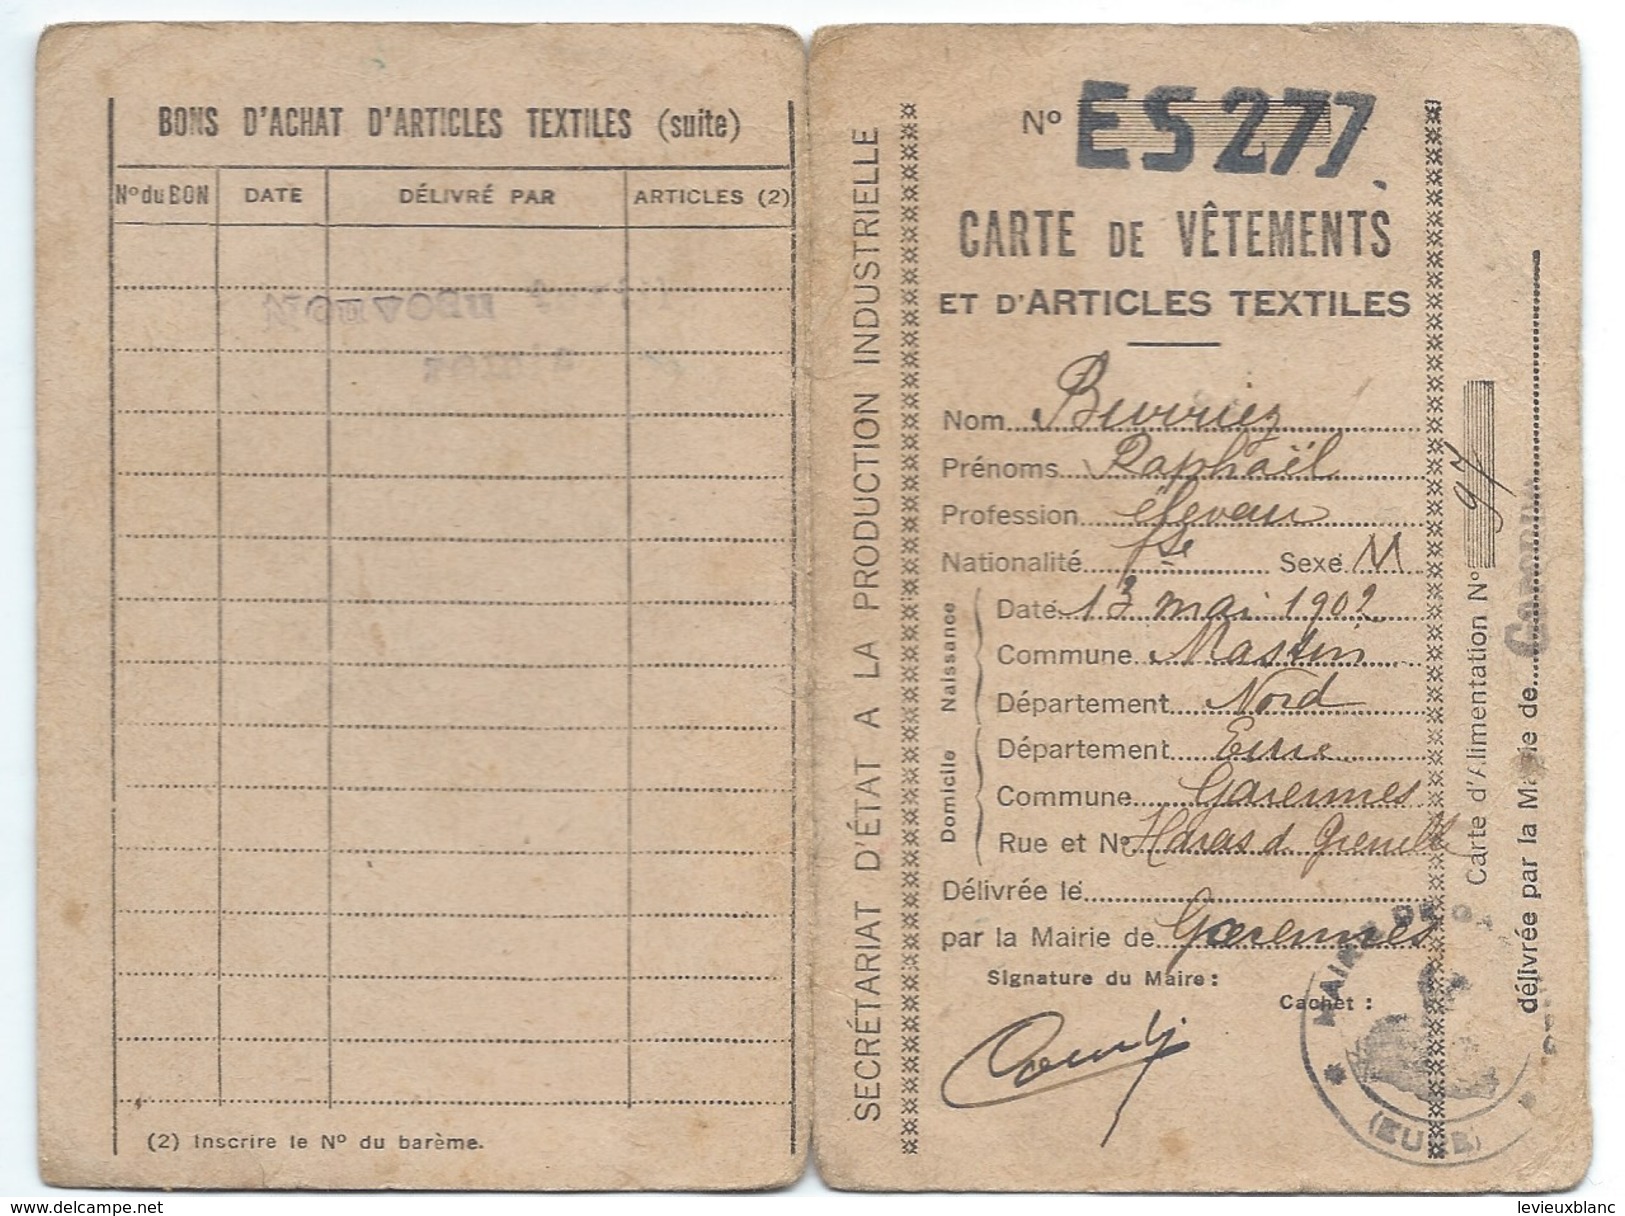 BONS D'ACHAT D'ARTICLES TEXTILES (suite)
Nº du BON DATE DÉLIVRÉ PAR ARTICLES (2)
(2) Inscrire le Nº du barème.
SECRÉTARIAT D'ÉTAT A LA PRODUCTION INDUSTRIELLE
Nº ES 277
CARTE DE VÊTEMENTS
ET D'ARTICLES TEXTILES
Nom Buvriez
Prénoms Raphaël
Profession
Nationalité fse Sexe M
Naissance
Date 13 mai 1902
Commune Mastin
Département Nord
Domicile
Département Eure
Commune Garennes
Rue et Nº Haras d. Grenelle
Délivrée le
par la Mairie de Garennes
Signature du Maire :
Cachet :
MAIRIE DE GA
(EURE)
Carte d'Alimentation Nº 97
délivrée par la Mairie de
levieuxblanc